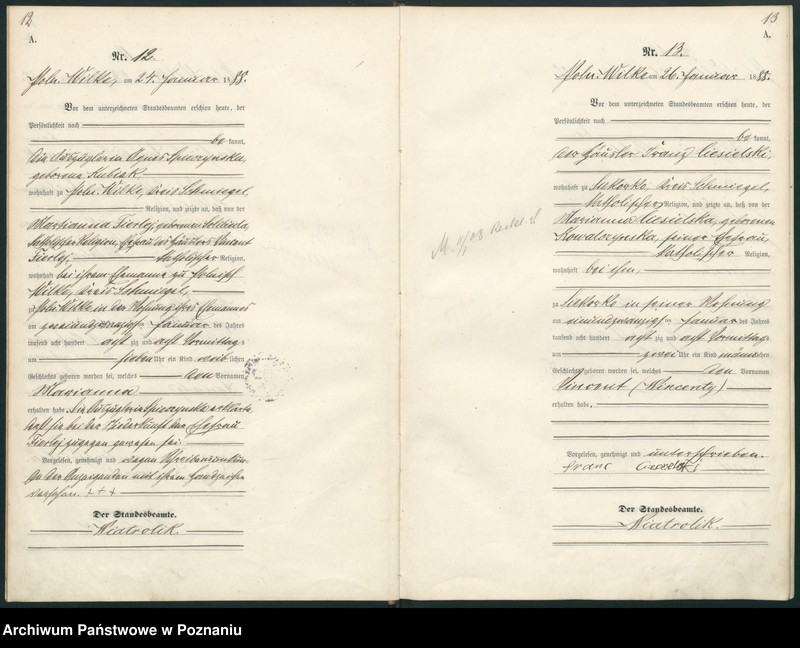 12
A.
Nr. 12.
Poln. Wilke, am 24. Januar 1888.
Vor dem unterzeichneten Standesbeamten erschien heute, der
Persönlichkeit nach
be kannt,
die Auszüglerin Agnes
geborene Kubiak
wohnhaft zu Poln. Wilke, Kreis Schmiegel,
Religion, und zeigte an, daß von der
Marianna geborenen
katholischer Religion, Ehefrau des Häuslers
katholischer Religion,
wohnhaft bei ihrem Ehemanne zu Polnisch
Wilke, Kreis Schmiegel,
zu Poln. Wilke in der Wohnung ihres Ehemannes
am zweiundzwanzigsten Januar des Jahres
tausend acht hundert acht zig und acht Vormittags
um sieben Uhr ein Kind weib lichen
Geschlechts geboren worden sei, welches den Vornamen
Marianna
erhalten habe. Die Auszüglerin erklärte,
daß sie bei der Niederkunft der Ehefrau
zugegen gewesen sei.
Vorgelesen, genehmigt und wegen Schreibensunkunde
der Anzeigenden mit ihrem Handzeichen
versehen. +++
Der Standesbeamte.
Wiatrolik.
13
A.
Nr. 13.
Poln. Wilke am 26. Januar 1888.
Vor dem unterzeichneten Standesbeamten erschien heute, der
Persönlichkeit nach
be kannt,
der Häusler Franz Ciesielski,
wohnhaft zu Kreis Schmiegel,
katholischer Religion, und zeigte an, daß von der
Marianna Ciesielska, geborenen
Kowalczynska, seiner Ehefrau,
katholischer Religion,
wohnhaft bei ihm,
zu in seiner Wohnung
am einundzwanzigsten Januar des Jahres
tausend acht hundert acht zig und acht Vormittags
um zwei Uhr ein Kind männlichen
Geschlechts geboren worden sei, welches den Vornamen
Vincent (Wincenty)
erhalten habe.
Vorgelesen, genehmigt und unterschrieben.
Franc Ciesielski
Der Standesbeamte.
Wiatrolik.
Archiwum Państwowe w Poznaniu